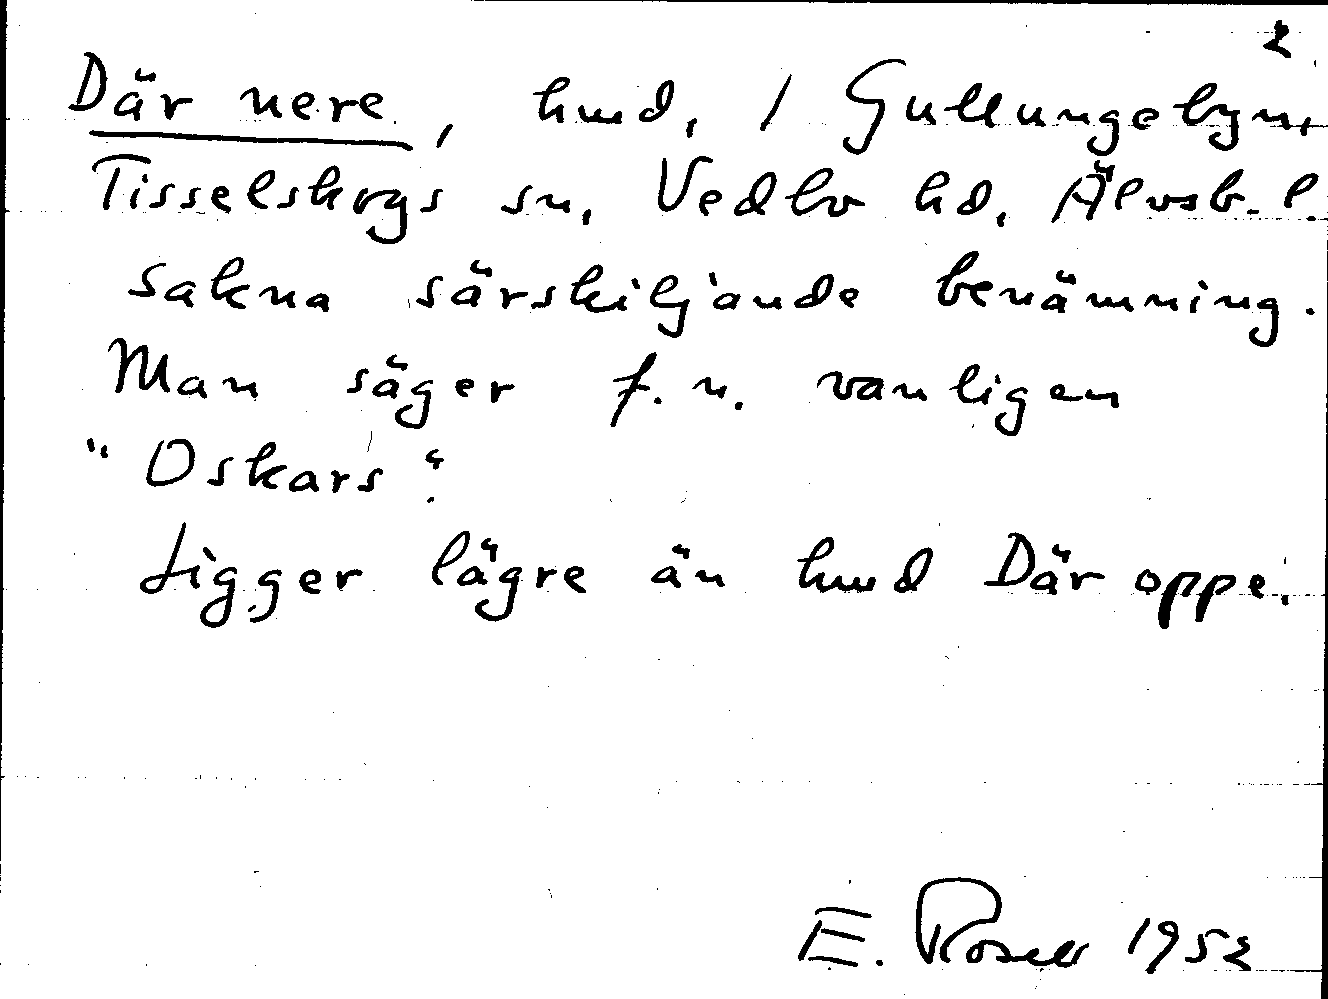 2
Där nere, hmd, 1 Gullungebyn,
Tisselskogs sn, Vedbo hd, Älvsb. l.
sakna särskiljande benämning.
Man säger f.n. vanligen
"Oskars".
Ligger lägre än hmd Där oppe.
E. Rosell 1952